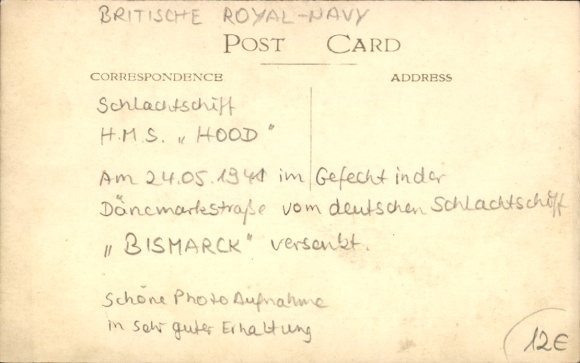 BRITISCHE ROYAL-NAVY
POST CARD
CORRESPONDENCE ADDRESS
Schlachtschiff
H.M.S. „HOOD"
Am 24.05.1941 im Gefecht in der
Dänemarkstraße vom deutschen Schlachtschiff
„BISMARCK" versenkt.
Schöne Photo Aufnahme
in sehr guter Erhaltung
12€